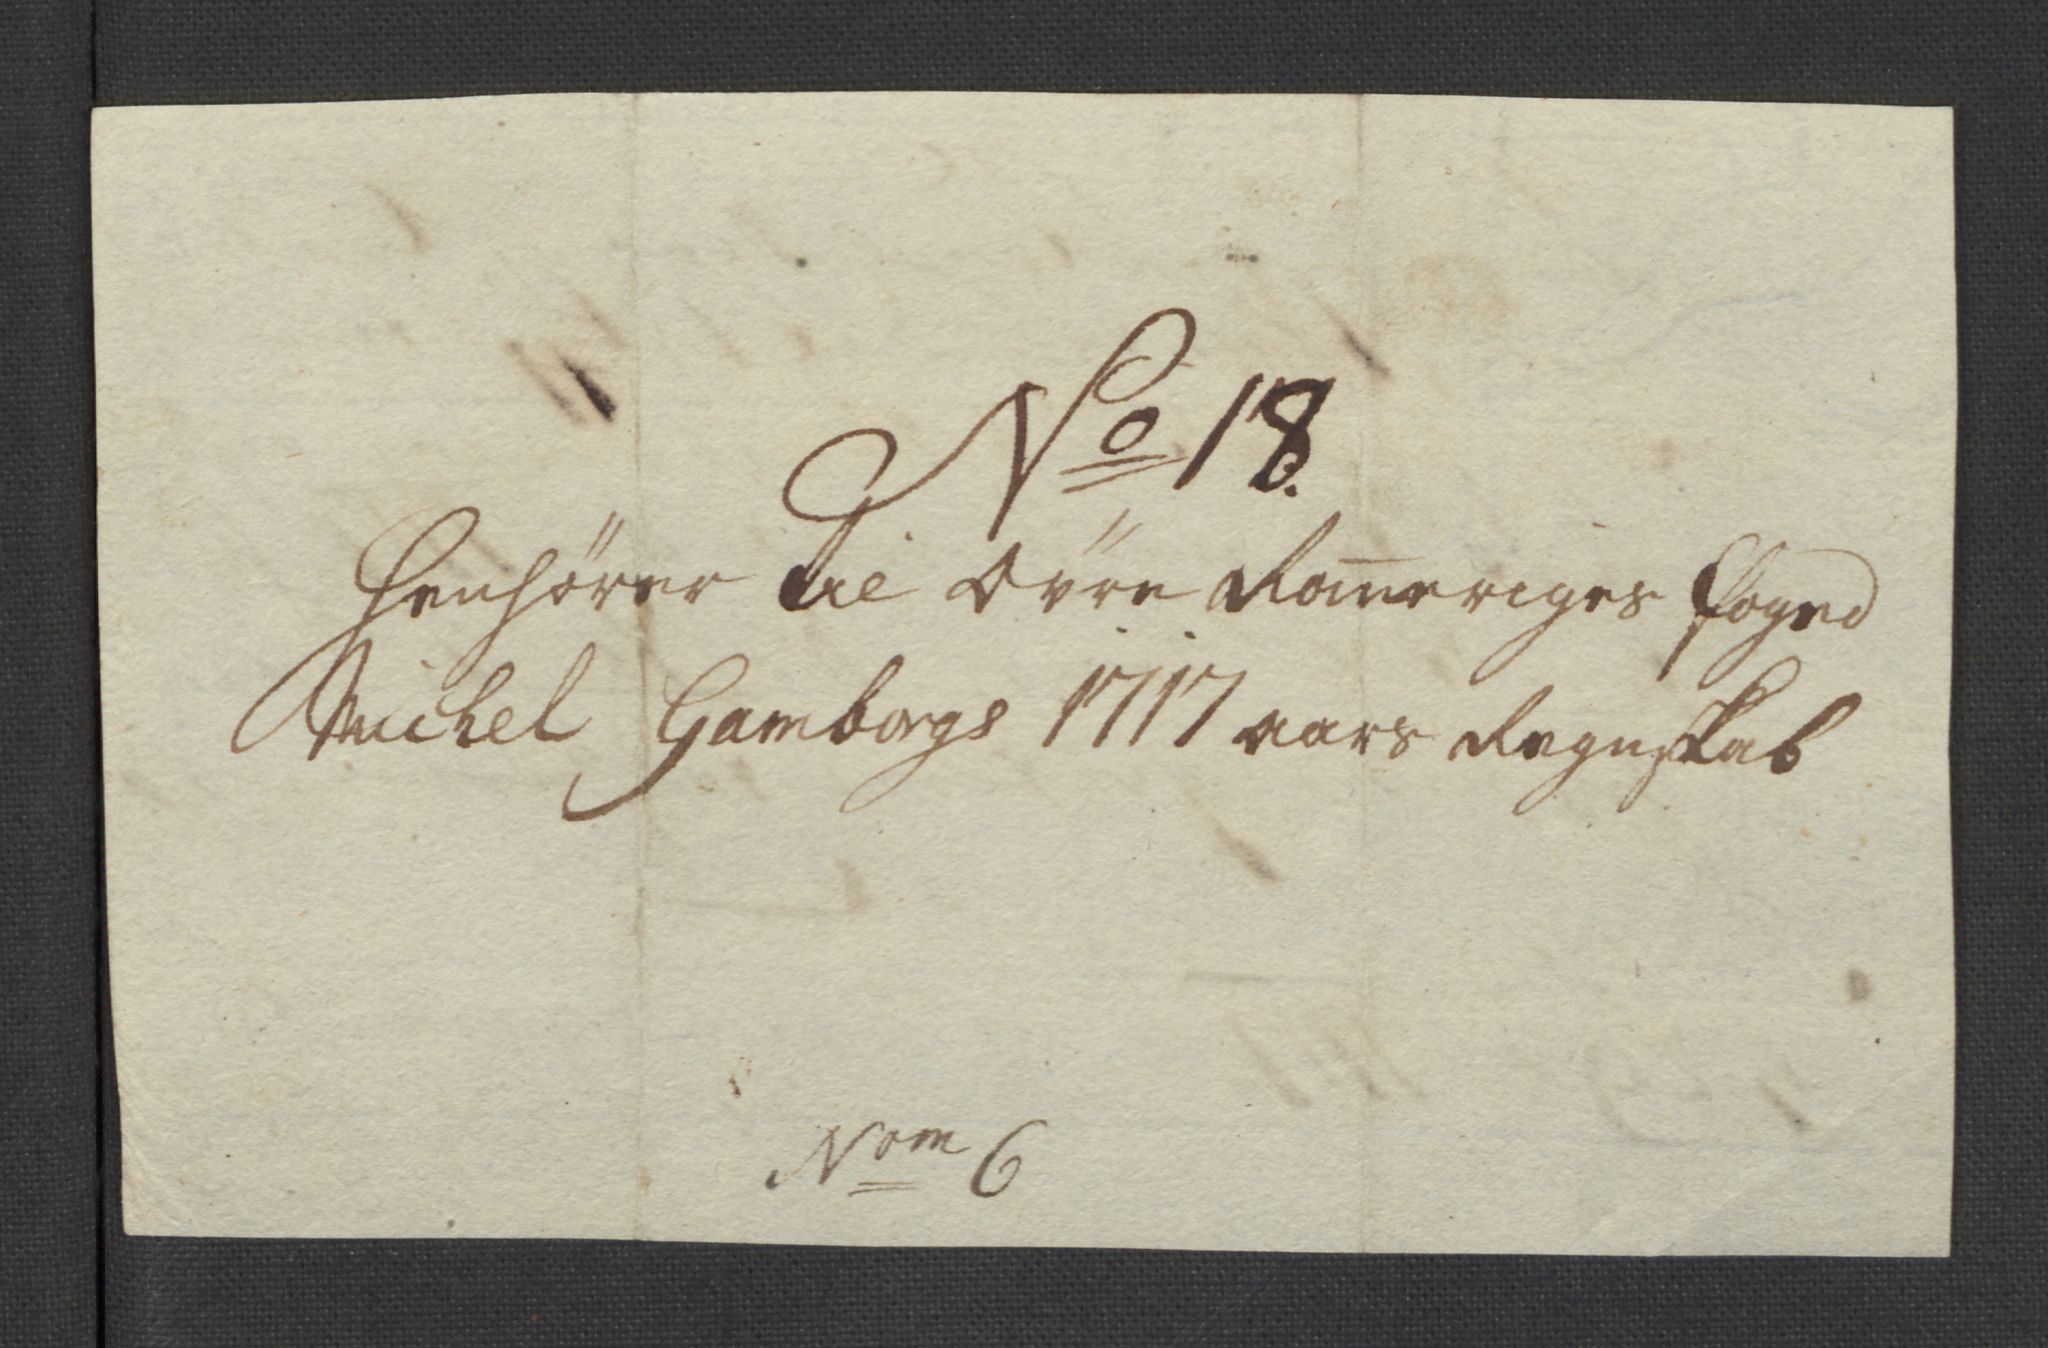 No 18.
Henhörer til Övre Romeriges foged
Michel Gamborgs 1717 aars Regnskab
Nom 6